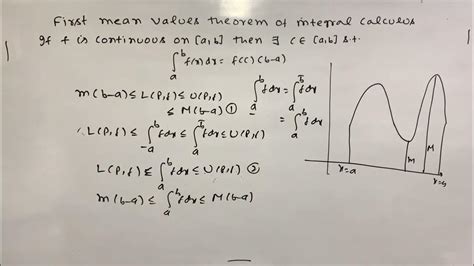 First mean values theorem of integral calculus
If f is continuous on [a,b] then ∃ c ∈ [a,b] s.t.
∫_a^b f(x)dx = f(c) (b-a)
m(b-a) ≤ L(P,f) ≤ U(P,f)
≤ M(b-a) ①
∫_a^b fdx = ∫_a^b̄ fdx
= ∫_a^b fdx
∴ L(P,f) ≤ ∫_-a^b fdx ≤ ∫_a^b̄ fdx ≤ U(P,f)
L(P,f) ≤ ∫_a^b fdx ≤ U(P,f) ②
m(b-a) ≤ ∫_a^b fdx ≤ M(b-a)
m
M
x=a
x=b